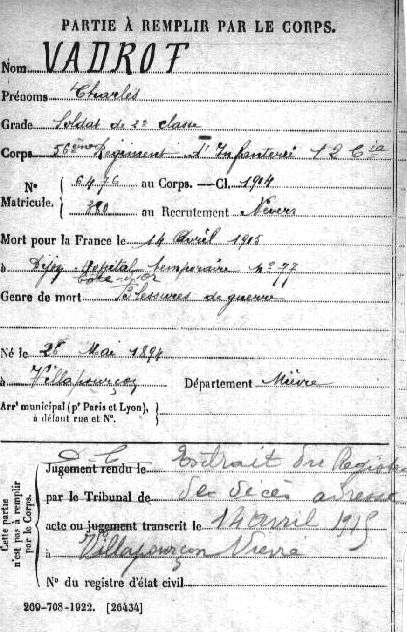 PARTIE À REMPLIR PAR LE CORPS.
Nom VADROT
Prénoms Charles
Grade Soldat de 2e classe
Corps 56ème Régiment d'Infanterie 12 Cie
Nº 6476 au Corps. — Cl. 1904
Matricule. 320 au Recrutement Nevers
Mort pour la France le 14 Avril 1915
à Dijon Hopital temporaire nº 77
Côte-d'Or
Genre de mort Blessures de guerre
Né le 28 Mai 1884
à Villapourçon Département Nièvre
Arrt municipal (pr Paris et Lyon),
à défaut rue et Nº.
Cette partie
n'est pas à remplir
par le Corps.
Jugement rendu le Extrait du Registre
par le Tribunal de des décès adressé
acte ou jugement transcrit le 14 avril 1915
à Villapourçon Nièvre
Nº du registre d'état civil
269-708-1922. [26434]